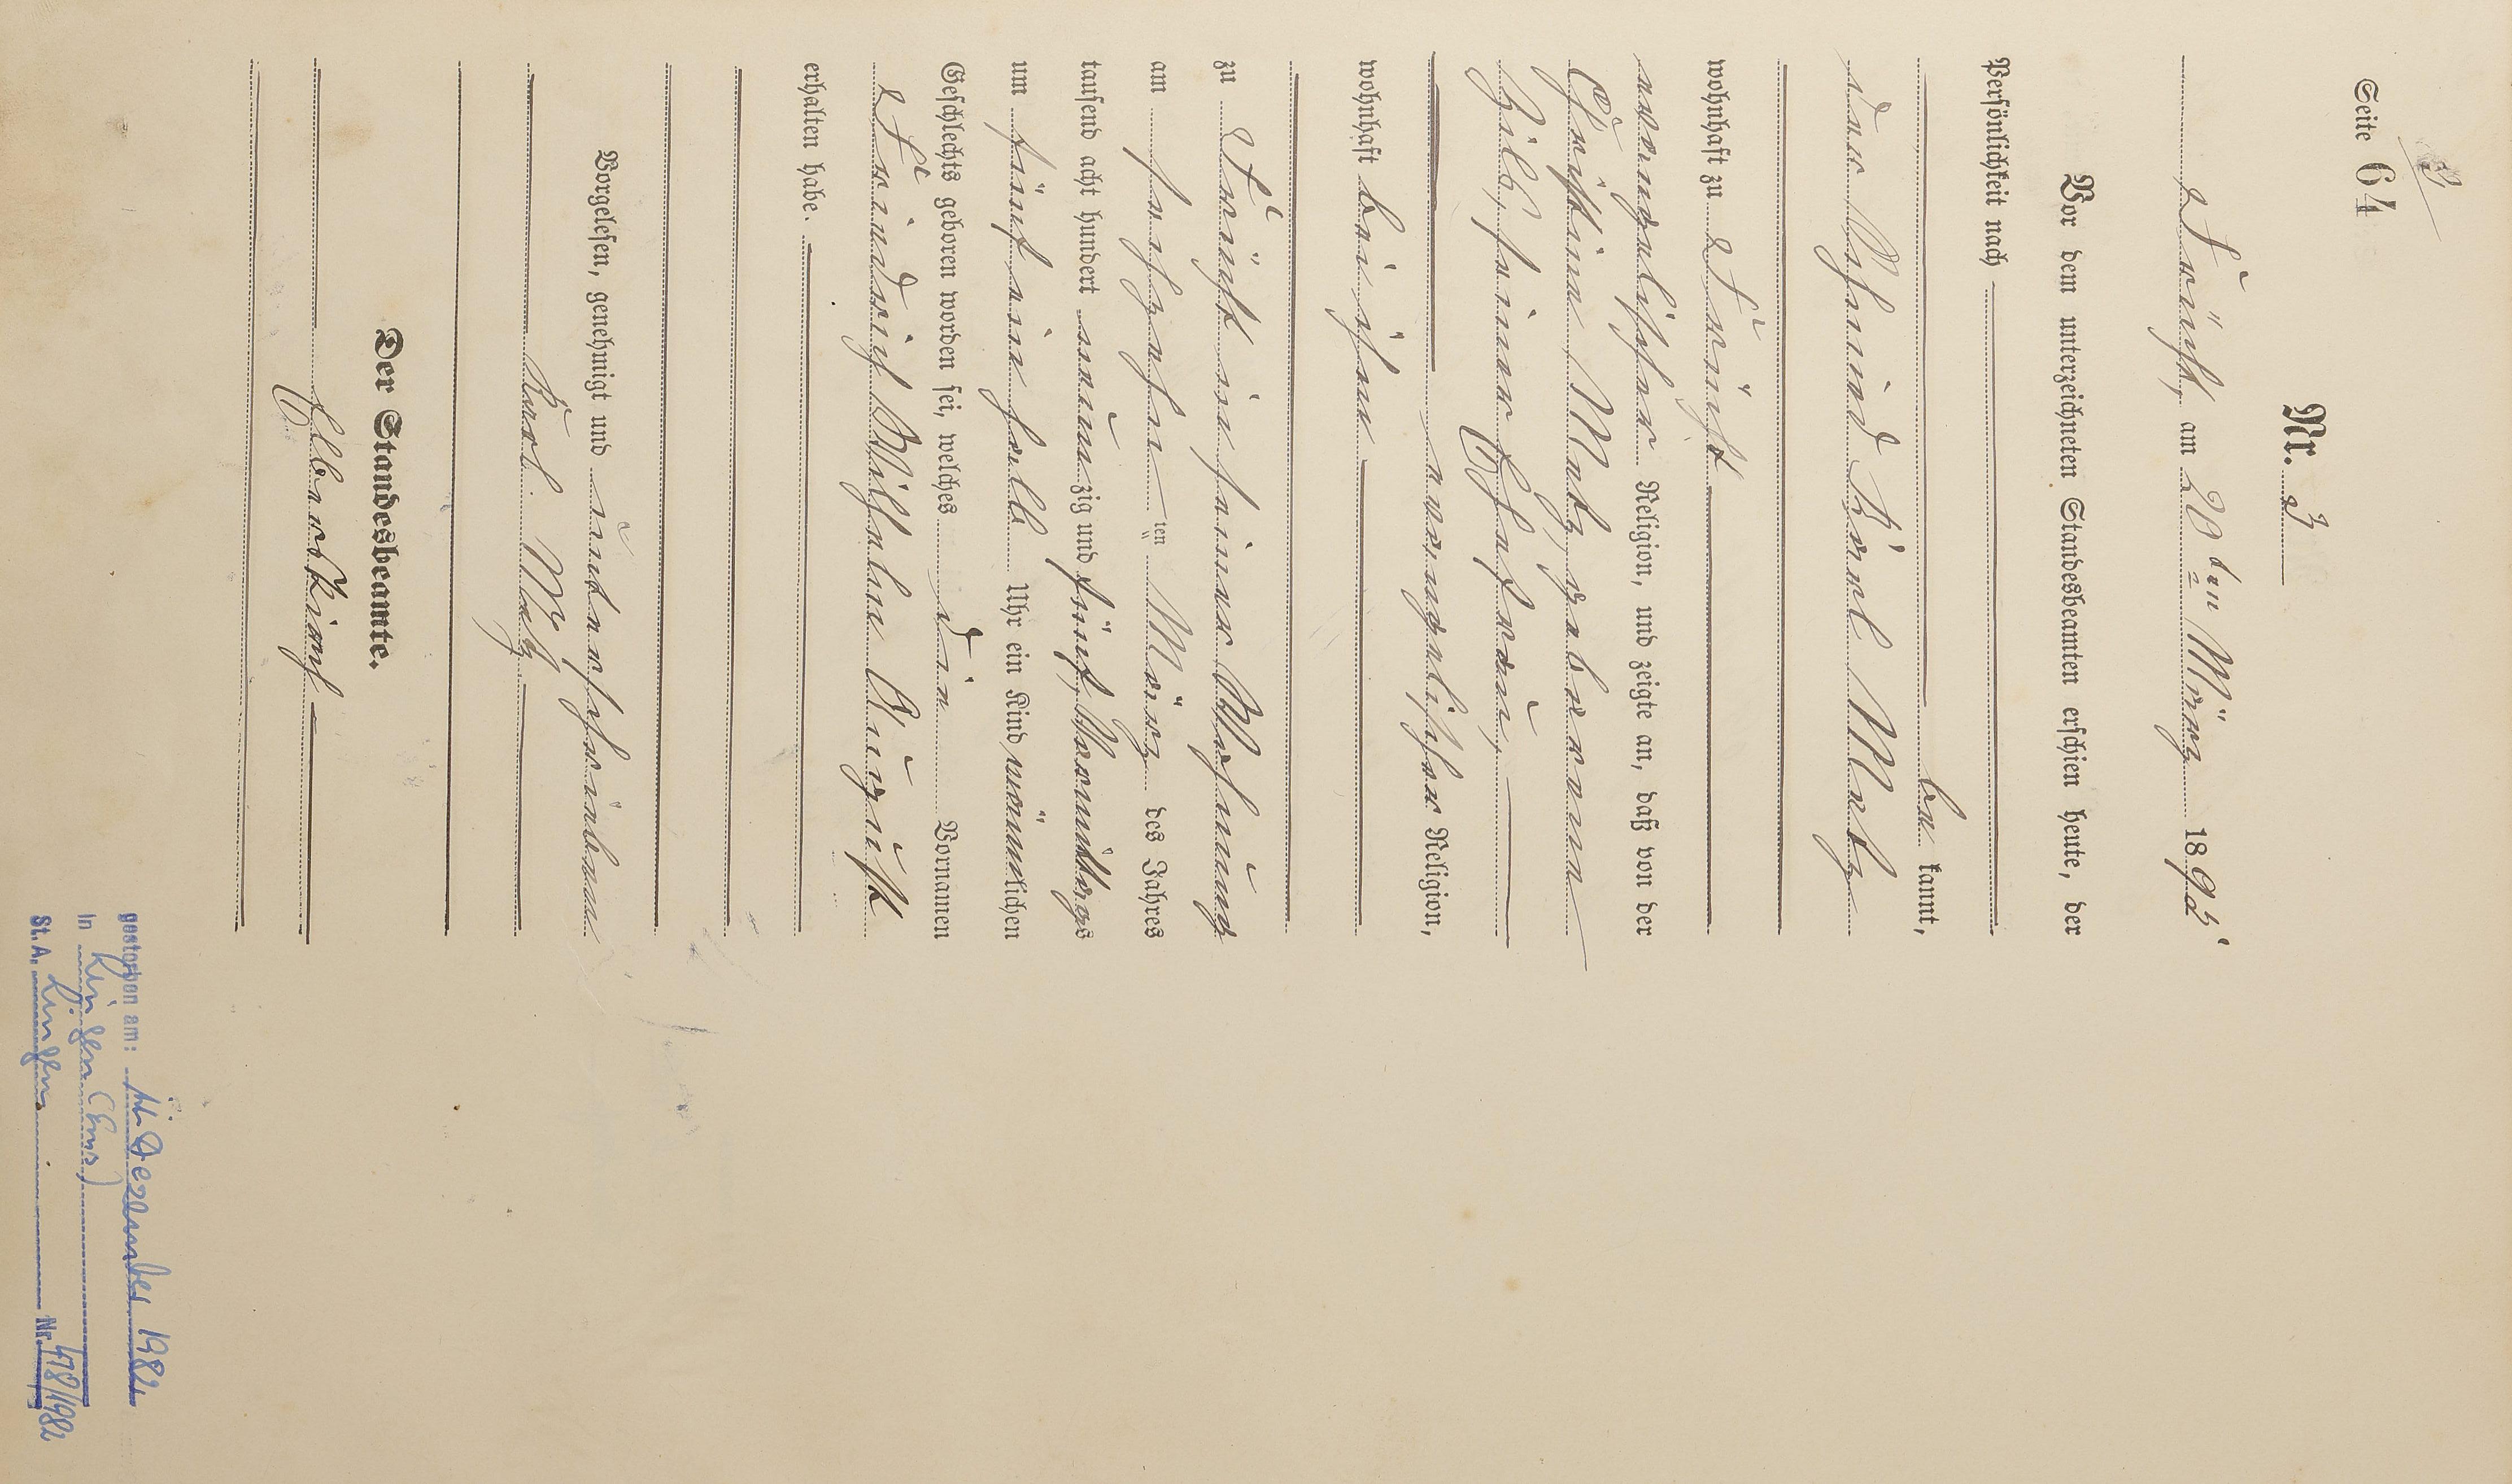 Seite 64
Nr. 3
Frücht, am 20ten März 1895
Vor dem unterzeichneten Standesbeamten erschien heute, der
Persönlichkeit nach
be kannt,
der Schmied Karl Metz
wohnhaft zu Frücht
evangelischer Religion, und zeigte an, daß von der
Christine Metz, geborenen
seiner Ehefrau,
evangelischer Religion,
wohnhaft bei ihm
zu Frücht in seiner Wohnung
am sechzehn ten März des Jahres
tausend acht hundert neun zig und fünf, Vormittags
um fünf ein halb Uhr ein Kind männlichen
Geschlechts geboren worden sei, welches die Vornamen
Friedrich Wilhelm August
erhalten habe.
Vorgelesen, genehmigt und unterschrieben
Karl. Metz
Der Standesbeamte.
gestorben am: 11. Dezember 1982
in Lingen (Ems)
St. A. Lingen Nr. 478/1982